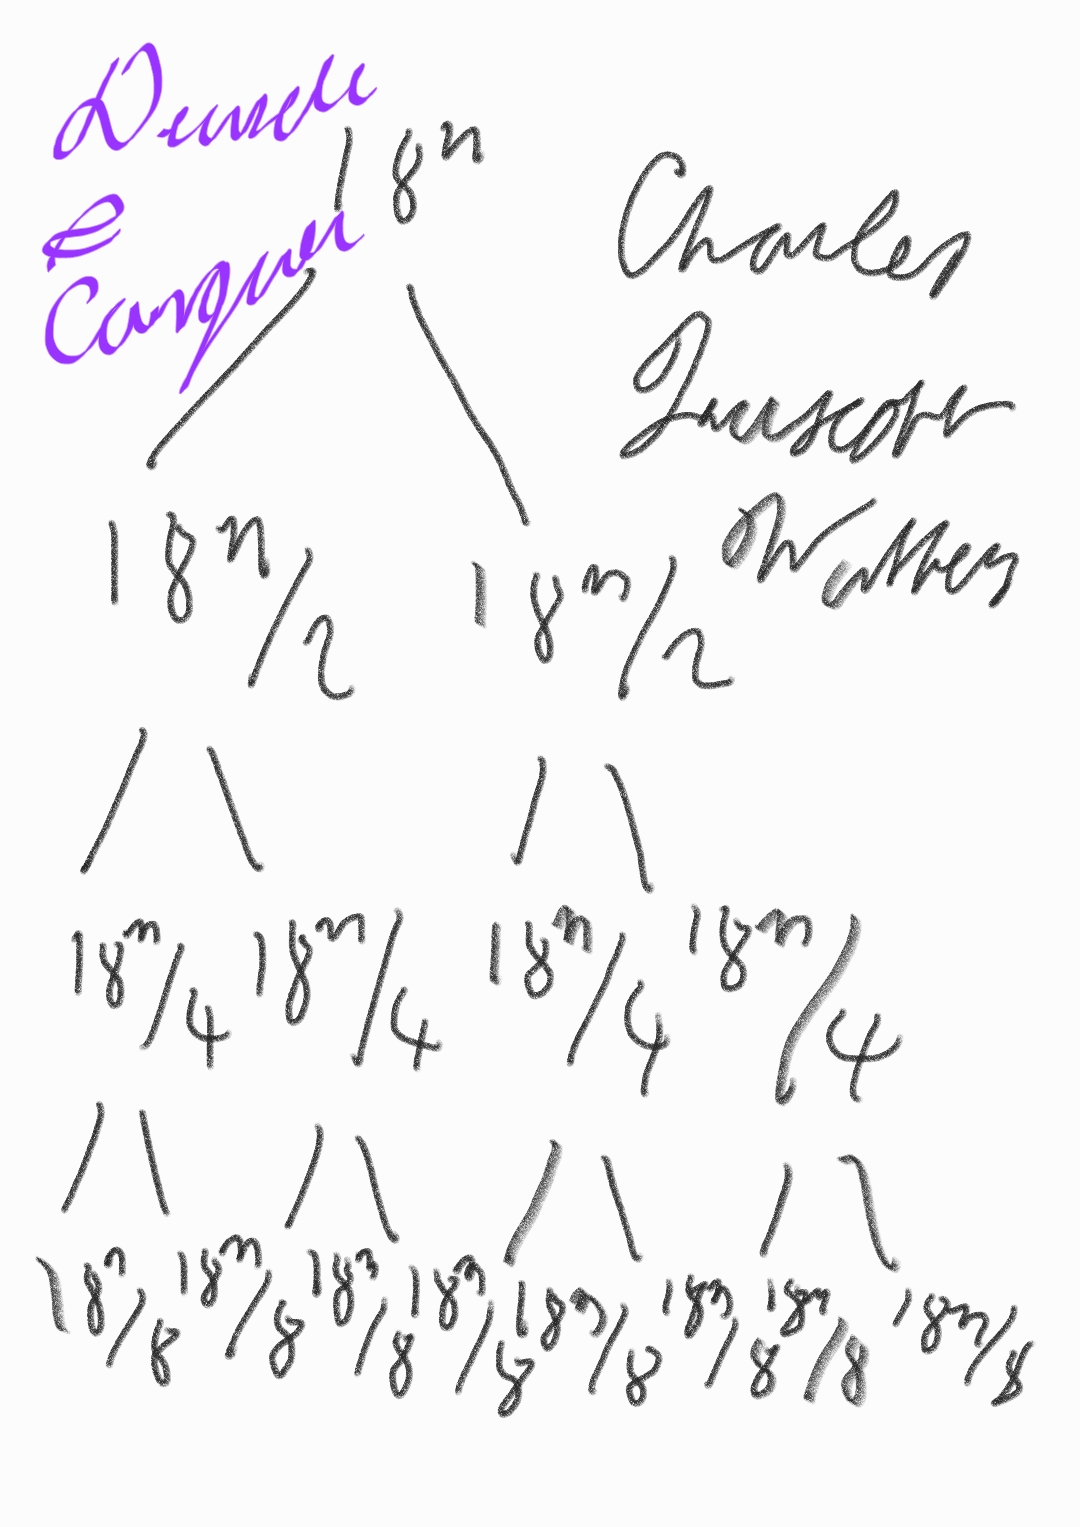 Divide
&
Conquer
18ⁿ
Charles
Truscott
Watters
18ⁿ/2 18ⁿ/2
18ⁿ/4 18ⁿ/4 18ⁿ/4 18ⁿ/4
18ⁿ/8 18ⁿ/8 18ⁿ/8 18ⁿ/8 18ⁿ/8 18ⁿ/8 18ⁿ/8 18ⁿ/8